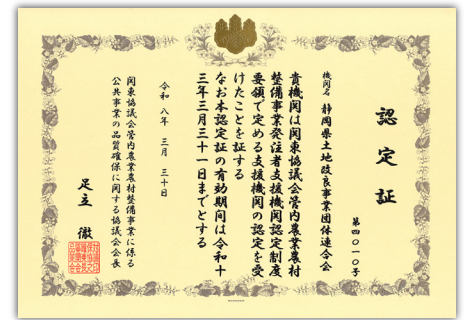 認定証
第四〇一〇号
機関名 静岡県土地改良事業団体連合会
貴機関は関東協議会管内農業農村
整備事業発注者支援機関認定制度
要領で定める支援機関の認定を受
けたことを証する
なお本認定証の有効期間は令和十
三年三月三十一日までとする
令和八年 三月 三十日
関東協議会管内農業農村整備事業に係る
公共事業の品質確保に関する協議会会長
足立 徹